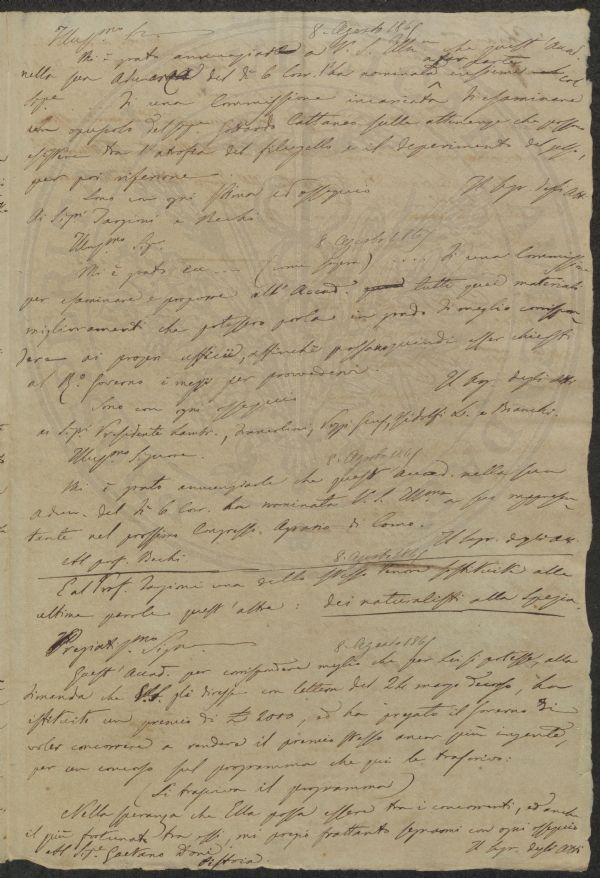 Illuss.mo Sr.
8. Agosto 1865
Mi è grato annunziare a V. S. Ill.ma che quest'Accad.
nella sua Adunanza del dì 6 Corr. l'ha nominata
di una Commissione incaricata di esaminare
un opuscolo del Sig.re Gottardo Cattaneo sulla attenenza che possa
esistere tra l'atrofia del filugello e il deperimento del gelso,
per poi riferirne.
Sono con ogni stima ed ossequio
Il Segr. degli Atti
Ai Sig.ri Targioni e Bechi
Illuss.mo Sig.
8. Agosto 1865
Mi è grato ec. ... (come sopra) .... di una Commissione
per esaminare e proporre all'Accad. tutti quei materiali
miglioramenti che potessero porla in grado di meglio corrispon
dere ai propri uffici, affinchè possano quindi esser chiesti
al R.o Governo i mezzi per provvedervi.
Il Seg. degli Atti
Sono con ogni ossequio
ai Sig.ri Presidente Lambr., Ridolfi L. e Bianchi.
Illuss.mo Signore.
8. Agosto 1865
Mi è grato annunziarle che quest'Accad. nella sua
Adun. del dì 6 Corr. ha nominata V. S. Ill.ma a suo rappresen
tante nel prossimo Congresso Agrario di Como.
Il Segr. degli Atti
Al prof. Bechi
8. Agosto 1865
E al Prof. Targioni una dello stesso tenore sostituite alle
ultime parole quest'altre: dei naturalisti alla Spezia.
Pregiatiss.mo Sign.
8. Agosto 1865
Quest'Accad. per corrispondere meglio che per lei si potesse, alla
dimanda che gli diresse con lettera del 24 marzo decorso, ha
istituito un premio di £ 2000, ed ha pregato il Governo di
voler concorrere a rendere il premio stesso ancor più ingente,
per un concorso sul programma che qui le trascrivo:
(si trascriva il programma)
Nella speranza che Ella possa essere tra i concorrenti, ed anche
il più fortunato tra essi, mi pregio frattanto segnarmi con ogni ossequio
Il Segr. degli Atti
Al Sig.e Gaetano Doni
Pistoia.